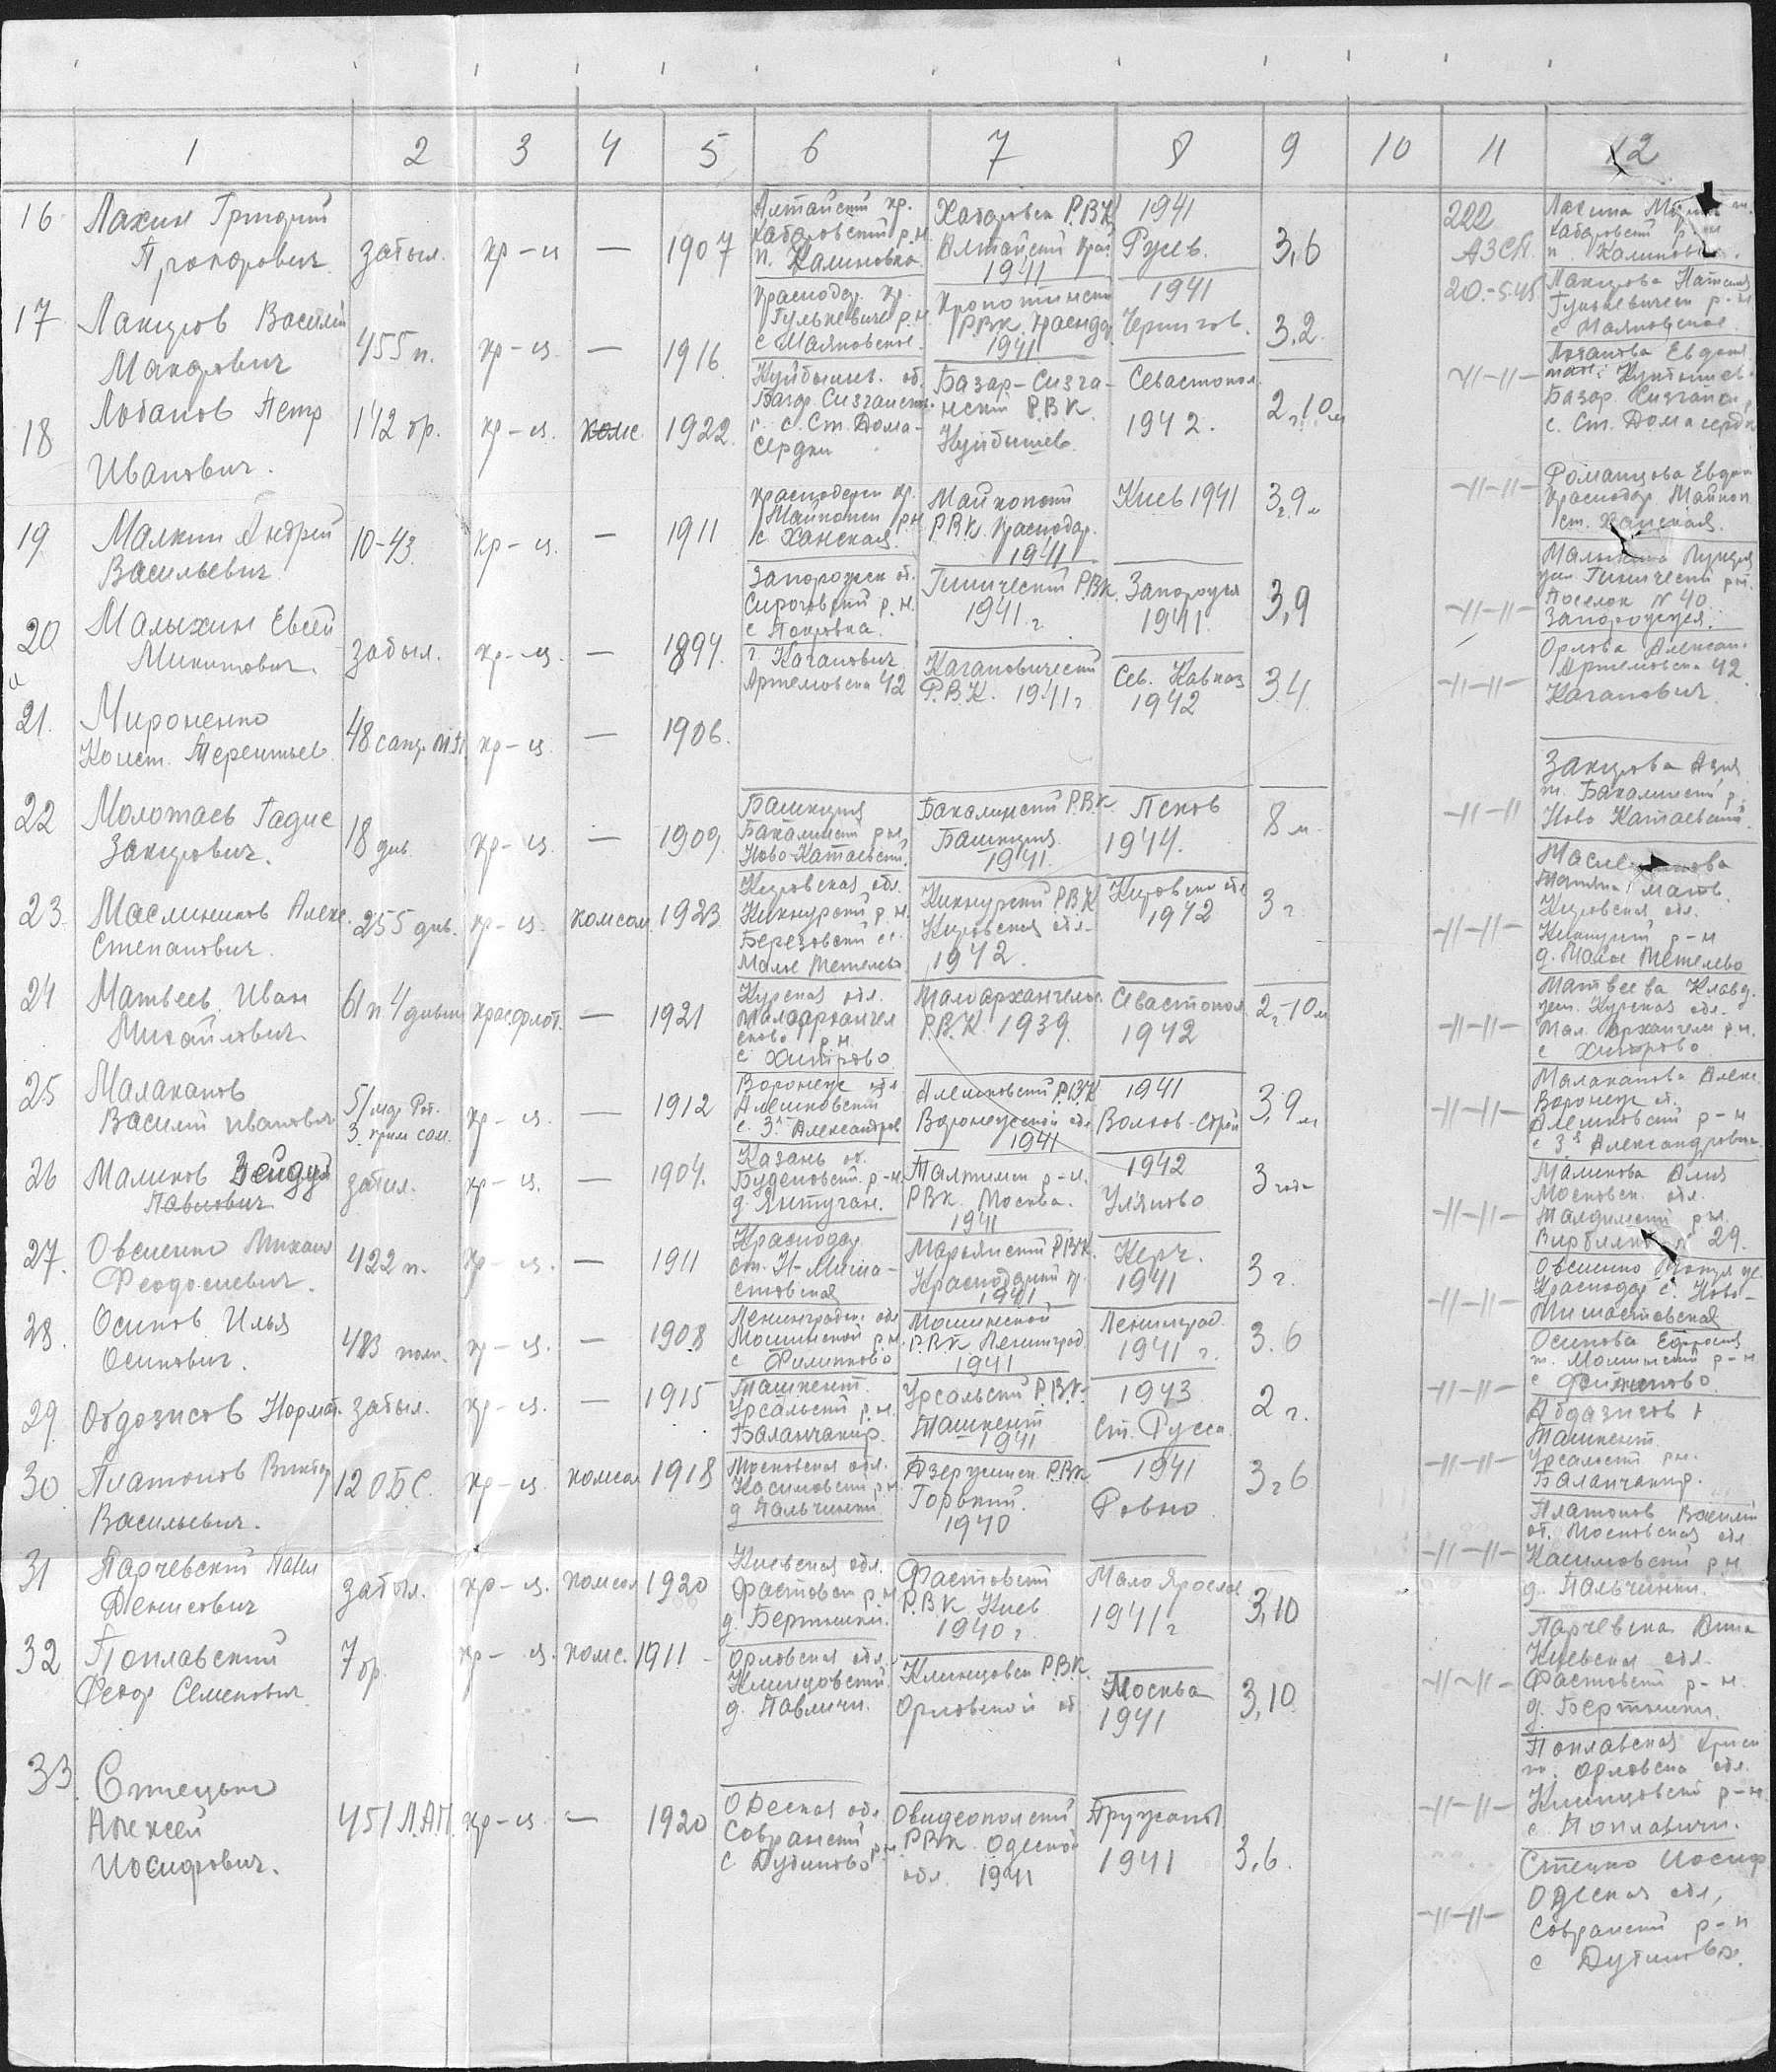 1 2 3 4 5 6 7 8 9 10 11 12
16 Лахин Григорий
Прокорович
забыл. кр-ц — 1907
Алтайский кр.
Хабаровский р.н.
п. Калиновка
Хабаровск Р.В.К
Алтайский край
1941
1941
Русев.
3,6
222
АЗСП
20.-5.45
Лахина
Хабаровский
п. Калиновка.
17 Лакизов Василий
Макарович
455 п. кр-ц. — 1916.
Краснодар. кр.
Гулькевичс р.н
с Маяковское.
Кропотинск
РВК. Краснда
1941
1941
Чернигов.
3,2
Гулькевическ р-н
с Маяковское
18 Лобанов Петр
Иванович.
142 бр. кр-ц. комс. 1922.
Куйбышев. об.
Базар. Сизганск.
с. Ст. Дома-
сердки
Базар-Сизга-
нский Р.В.К.
Куйбышев.
Севастопол.
1942.
2 г. 10 м
-//-//-
Лобанова Евдок
мать: Куйбышев.
Базар. Сизганск,
с. Ст. Домасердк
19 Малкин Андрей
Васильевич
10-43. кр-ц. — 1911
Краснодарск кр.
Майкопск р.н
с. Ханская.
Майкопский
Р.В.К. Краснодар.
1941
Киев 1941
3 г. 9 м
-//-//-
Романцова Евдок
Краснодар Майкоп
ст. Ханская.
20 Малыхин Евсей
Микитович.
забыл. кр-ц. — 1894.
Запорожск об.
Сирогозский р.н.
с Покровка.
Генический Р.В.К.
1941 г.
Запорожья
1941.
3,9
-//-//-
Генический рн.
Поселок №40
Запорожская.
21. Мироненко
Конст. Терентьев.
48 сапр. кр-ц — 1906.
г. Каганович
Артемовска 42
Кагановический
Р.В.К. 1941 г
Сев. Кавказ
1942
3.4
-//-//-
Орлова Алексан.
Артемовска 42.
Каганович.
22 Молотаев Гадис
Закирович.
18 див кр-ц. — 1909.
Башкирия
Бакалинск рн.
Ново-Катаевский.
Бакалинский Р.В.К
Башкирия
1941.
Псков
1944.
8 м.
-//-//
Закирова Азия
м. Бакалинский р.
Ново Катаевский.
23. Маслеников Алекс.
Степанович.
255 див. кр-ц. комсом. 1923
Кировская обл.
Кикнурский р.н.
Березовский сс.
Малое Метелево
Кикнурский Р.В.К
Кировская обл.
1942.
Кировская обл
1942
3 г.
-//-//-
Татьяна, матв.
Кировская обл.
Кикнурский р-н
д. Малое Метелево
24 Матвеев Иван
Михайлович.
61 п 4 дивизи краснофлот. — 1921
Курская обл.
Малоархангел
сково р.н
с Хитрово
Малоархангельс.
Р.В.К. 1939.
Севастопол
1942
2 г-10 м
-//-//-
Матвеева Клавд.
жен. Курская обл.
Мал. Архангелм р.н.
с Хитрово
25 Малаканов
Василий Иванович
кр-ц. — 1912
Воронеж обл
Алешковский
с. 3я Александров
Алешковский Р.В.К
Воронежской обл
1941
1941
Волхов-Строй
3,9 м
-//-//-
Малаканова Алекс.
Воронеж об.
Алешковский р-н
с 3я Александровка.
26 Маликов Зейдул
Павлович
забыл. кр-ц. — 1904.
Казань об.
Буденовский. р-н.
д. Янтуган.
Талтинск р-н.
РВК. Москва.
1941
1942
Ульяново
3 года
-//-//-
Маликова Алия
Московск. обл.
Талдомский р.н.
29.
27. Овсиенко Михаил
Феодосиевич.
422 п. кр-ц. — 1911
Краснодар
ст. Н-Миша-
стовская
Марьянский Р.В.К.
Краснодарский кр.
1941
Керч.
1941
3 г.
-//-//-
Краснодар с. Ново-
Мишастовская
28. Осипов Илья
Осипович.
483 полк. кр-ц. — 1908
Ленинградск. обл
Мошинской р.н.
с Филипково
Мошинской
Р.В.К. Ленинград.
1941
Ленинград.
1941 г.
3.6
-//-//-
Осипова Ефросия
м. Мошинский р-н
с Филипково
29. Обдозисов Нормат. забыл. кр-ц. — 1915
Ташкент.
Урсальский р.н.
Баланчакир.
Урсальский Р.В.К.
Ташкент
1941
1943
Ст. Русса.
2 г.
-//-//-
Абдазизов
Ташкент
Урсальский рн.
Баланчакир.
30. Платонов Виктор
Васильевич.
12 О.Б.С. кр-ц. комсом 1918
Московская обл.
Касимовский р.н
д Пальчинки
Дзержинск РВК
Горький.
1940
1941
Ровно
3 г 6
-//-//-
Платонов Василий
от. Московская обл
Касимовский р.н
д. Пальчинки.
31 Парчевский Павел
Денисович
забыл. кр-ц. комсом 1920
Киевская обл.
Фастовск р.н
д. Бертники.
Фастовский
Р.В.К Киев
1940 г.
Мало Яросла
1941 г
3,10
Парчевска Анна
Киевская обл.
Фастовский р-н.
д. Бертники.
32 Поплавский
Федор Семенович
7 бр. кр-ц. комс. 1911
Орловская обл.
Клинцовский
д. Павличи.
Клинцовск Р.В.К.
Орловской об
Москва
1941
3,10
-//-//-
Поплавская Крист
м. Орловска обл.
Клинцовский р-н
с. Поплавичи.
33. Стецько
Алексей
Иосифович.
451 Л.А.П. кр-ц — 1920
Одеская обл
Совранский р.н.
с Дубиново
Овидеопольский
РВК. Одеской
обл. 1941
Пружаны
1941
3,6.
-//-//-
Стецко Иосиф
Одеская обл,
Совранский р-н
с Дубиновка.